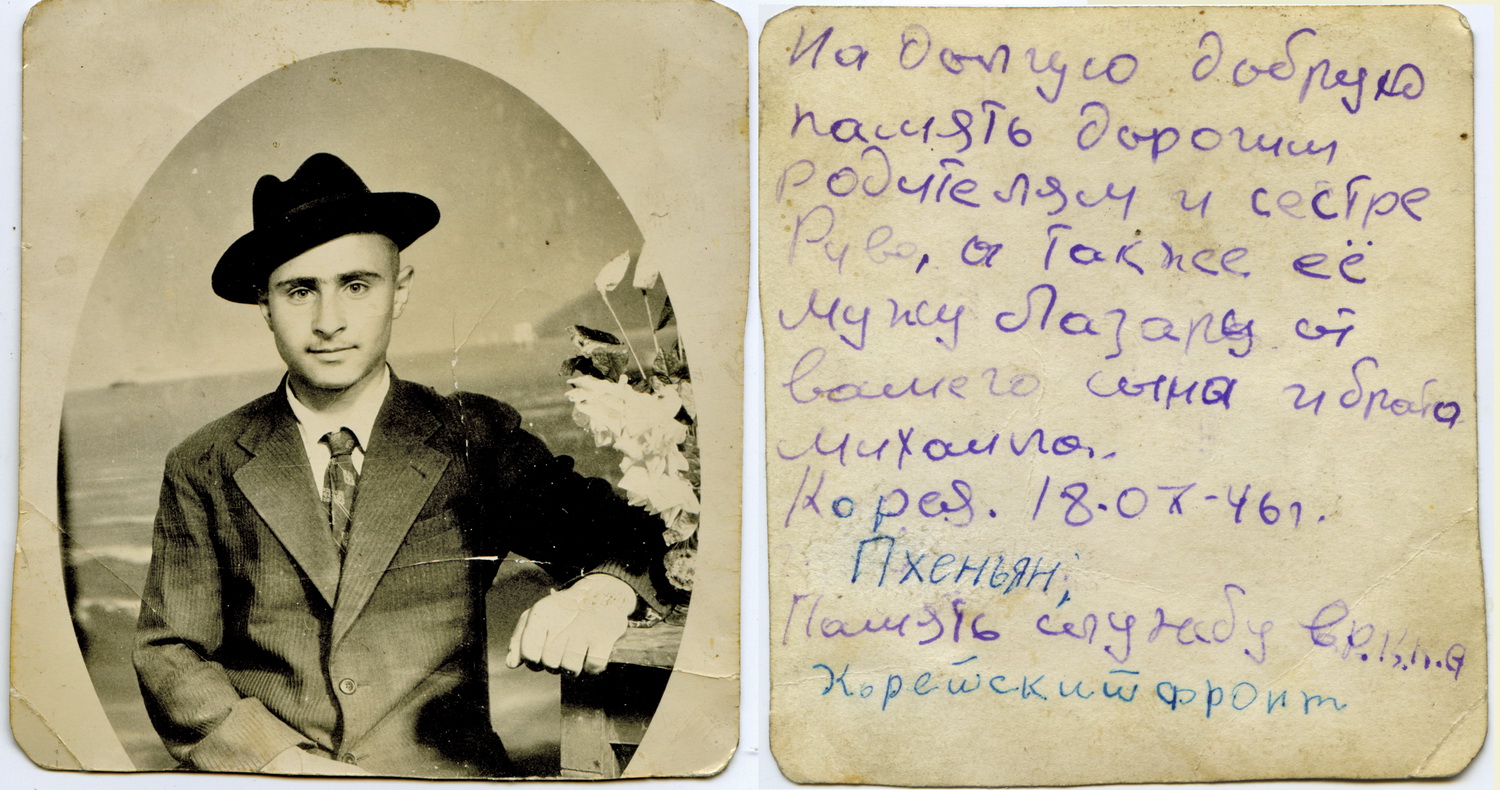 На долгую добрую
память дорогим
родителям и сестре
Риве, а также её
мужу Лазарю от
вашего сына и брата
Михаила.
Корея. 18.07-46г.
Пхеньян;
Память службу в
Корейский фронт